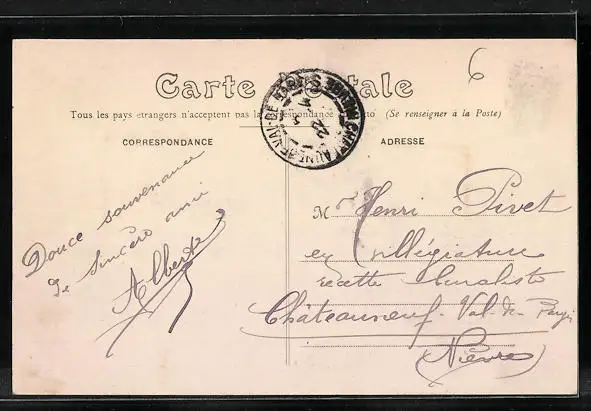 Carte Postale
Tous les pays étrangers n'acceptent pas la correspondance au recto (Se renseigner à la Poste)
CORRESPONDANCE
ADRESSE
6
Douce souvenance
de Sincère ami
Albert
Mr Henri Pivet
en villégiature
recette
Châteauneuf-Val-de-Bargis
(Nièvre)